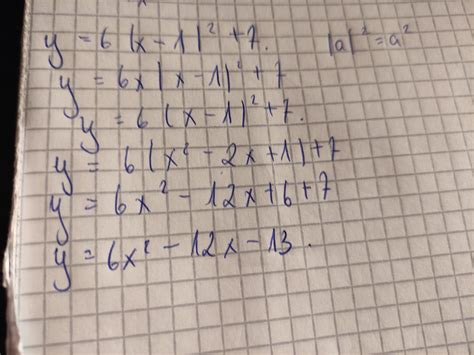 y = 6|x - 1|² + 7. |a|² = a²
y = 6x|x - 1|² + 7
y = 6(x - 1)² + 7.
y = 6(x² - 2x + 1) + 7
y = 6x² - 12x + 6 + 7
y = 6x² - 12x - 13.